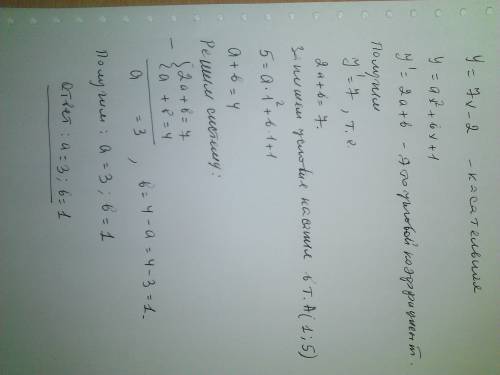 y = 7x - 2 - касательная
y = ax² + bx + 1
y' = 2a + b - это угловой коэффициент.
Получим
y' = 7, т.е.
2a + b = 7.
Запишем условия касания в т. A(1;5)
5 = a·1² + b·1 + 1
a + b = 4
Решим систему:
- { 2a + b = 7
{ a + b = 4
a = 3, b = 4 - a = 4 - 3 = 1.
Получим: a = 3; b = 1
Ответ: a = 3; b = 1